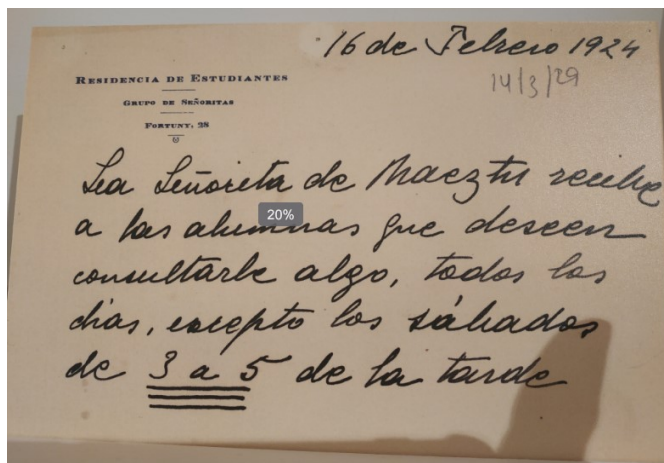 16 de Febrero 1924
14/3/29
RESIDENCIA DE ESTUDIANTES
GRUPO DE SEÑORITAS
FORTUNY, 28
La Señorita de Maeztu recibe
a las alumnas que deseen
20%
consultarle algo, todos los
días, excepto los sábados
de 3 a 5 de la tarde